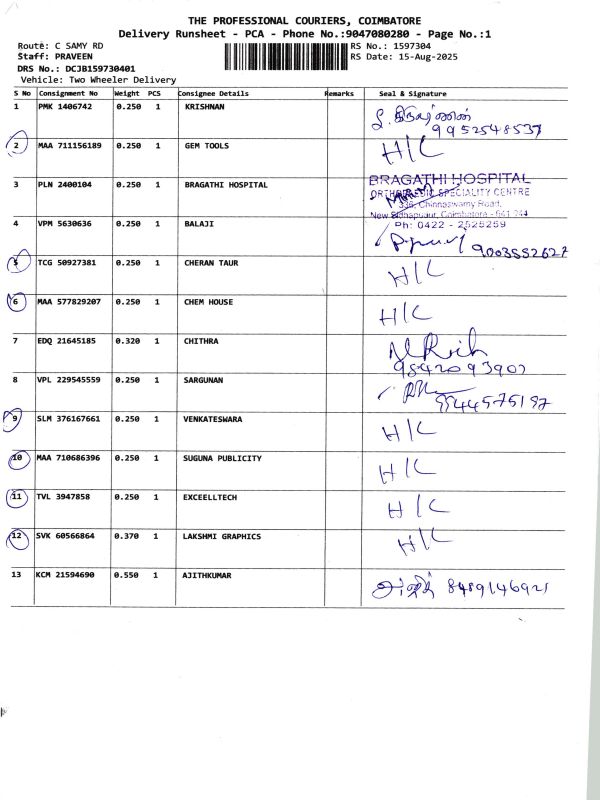 THE PROFESSIONAL COURIERS, COIMBATORE
Delivery Runsheet - PCA - Phone No.:9047080280 - Page No.:1
Route: C SAMY RD RS No.: 1597304
Staff: PRAVEEN RS Date: 15-Aug-2025
DRS No.: DCJB159730401
Vehicle: Two Wheeler Delivery
S No Consignment No Weight PCS Consignee Details Remarks Seal & Signature
1 PMK 1406742 0.250 1 KRISHNAN
9952548537
2 MAA 711156189 0.250 1 GEM TOOLS H/C
3 PLN 2400104 0.250 1 BRAGATHI HOSPITAL BRAGATHI HOSPITAL
ORTHOPAEDIC SPECIALITY CENTRE
Chinnaswamy Road,
New Sidhapudur, Coimbatore - 641 044
Ph: 0422 - 2525259
4 VPM 5630636 0.250 1 BALAJI
9003552627
5 TCG 50927381 0.250 1 CHERAN TAUR H/C
6 MAA 577829207 0.250 1 CHEM HOUSE H/C
7 EDQ 21645185 0.320 1 CHITHRA
9842093907
8 VPL 229545559 0.250 1 SARGUNAN
9944575197
9 SLM 376167661 0.250 1 VENKATESWARA H/C
10 MAA 710686396 0.250 1 SUGUNA PUBLICITY H/C
11 TVL 3947858 0.250 1 EXCEELLTECH H/C
12 SVK 60566864 0.370 1 LAKSHMI GRAPHICS H/C
13 KCM 21594690 0.550 1 AJITHKUMAR அஜித் 8489146921